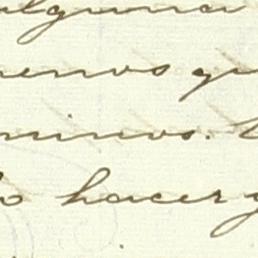 alguna
menos qu
minos.
lo hacer y